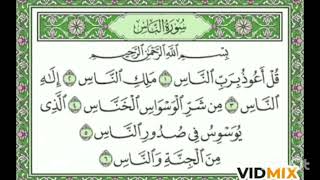 سُورَةُ النَّاسِ
بِسْمِ اللَّهِ الرَّحْمَٰنِ الرَّحِيمِ
قُلْ أَعُوذُ بِرَبِّ النَّاسِ ١ مَلِكِ النَّاسِ ٢ إِلَٰهِ
النَّاسِ ٣ مِن شَرِّ الْوَسْوَاسِ الْخَنَّاسِ ٤ الَّذِي
يُوَسْوِسُ فِي صُدُورِ النَّاسِ ٥
مِنَ الْجِنَّةِ وَالنَّاسِ ٦
VIDMIX